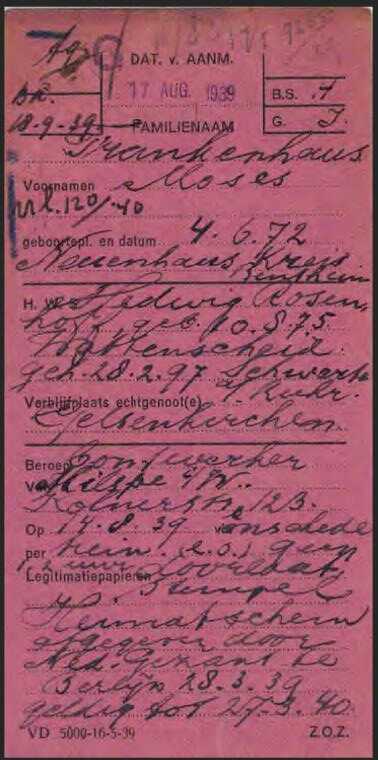 DAT. v. AANM.
17 AUG. 1939
B.S. A
G. I.
18-9-39
FAMILIENAAM
Frankenhaus
Voornamen Moses
vl. 120/-40
geboortepl. en datum 4.6.72
Neuenhaus Kreis
Bentheim
H. W. Hedwig Rosen
hoff, geb. 10.8.75
Wattenscheid
geh. 28.2.97 Schwerte
Ruhr.
Verblijfplaats echtgenoot(e)
Gelsenkirchen
Beroep
V
Kölnerstr. 123.
Op 14-8-39 v Enschede
per trein. geen
Legitimatiepapieren
stempel
Heimatschein
afgegeven door
Ned. Gezant te
Berlijn 28.3.39
geldig tot 27-3-40.
VD 5000-16-5-39 Z.O.Z.